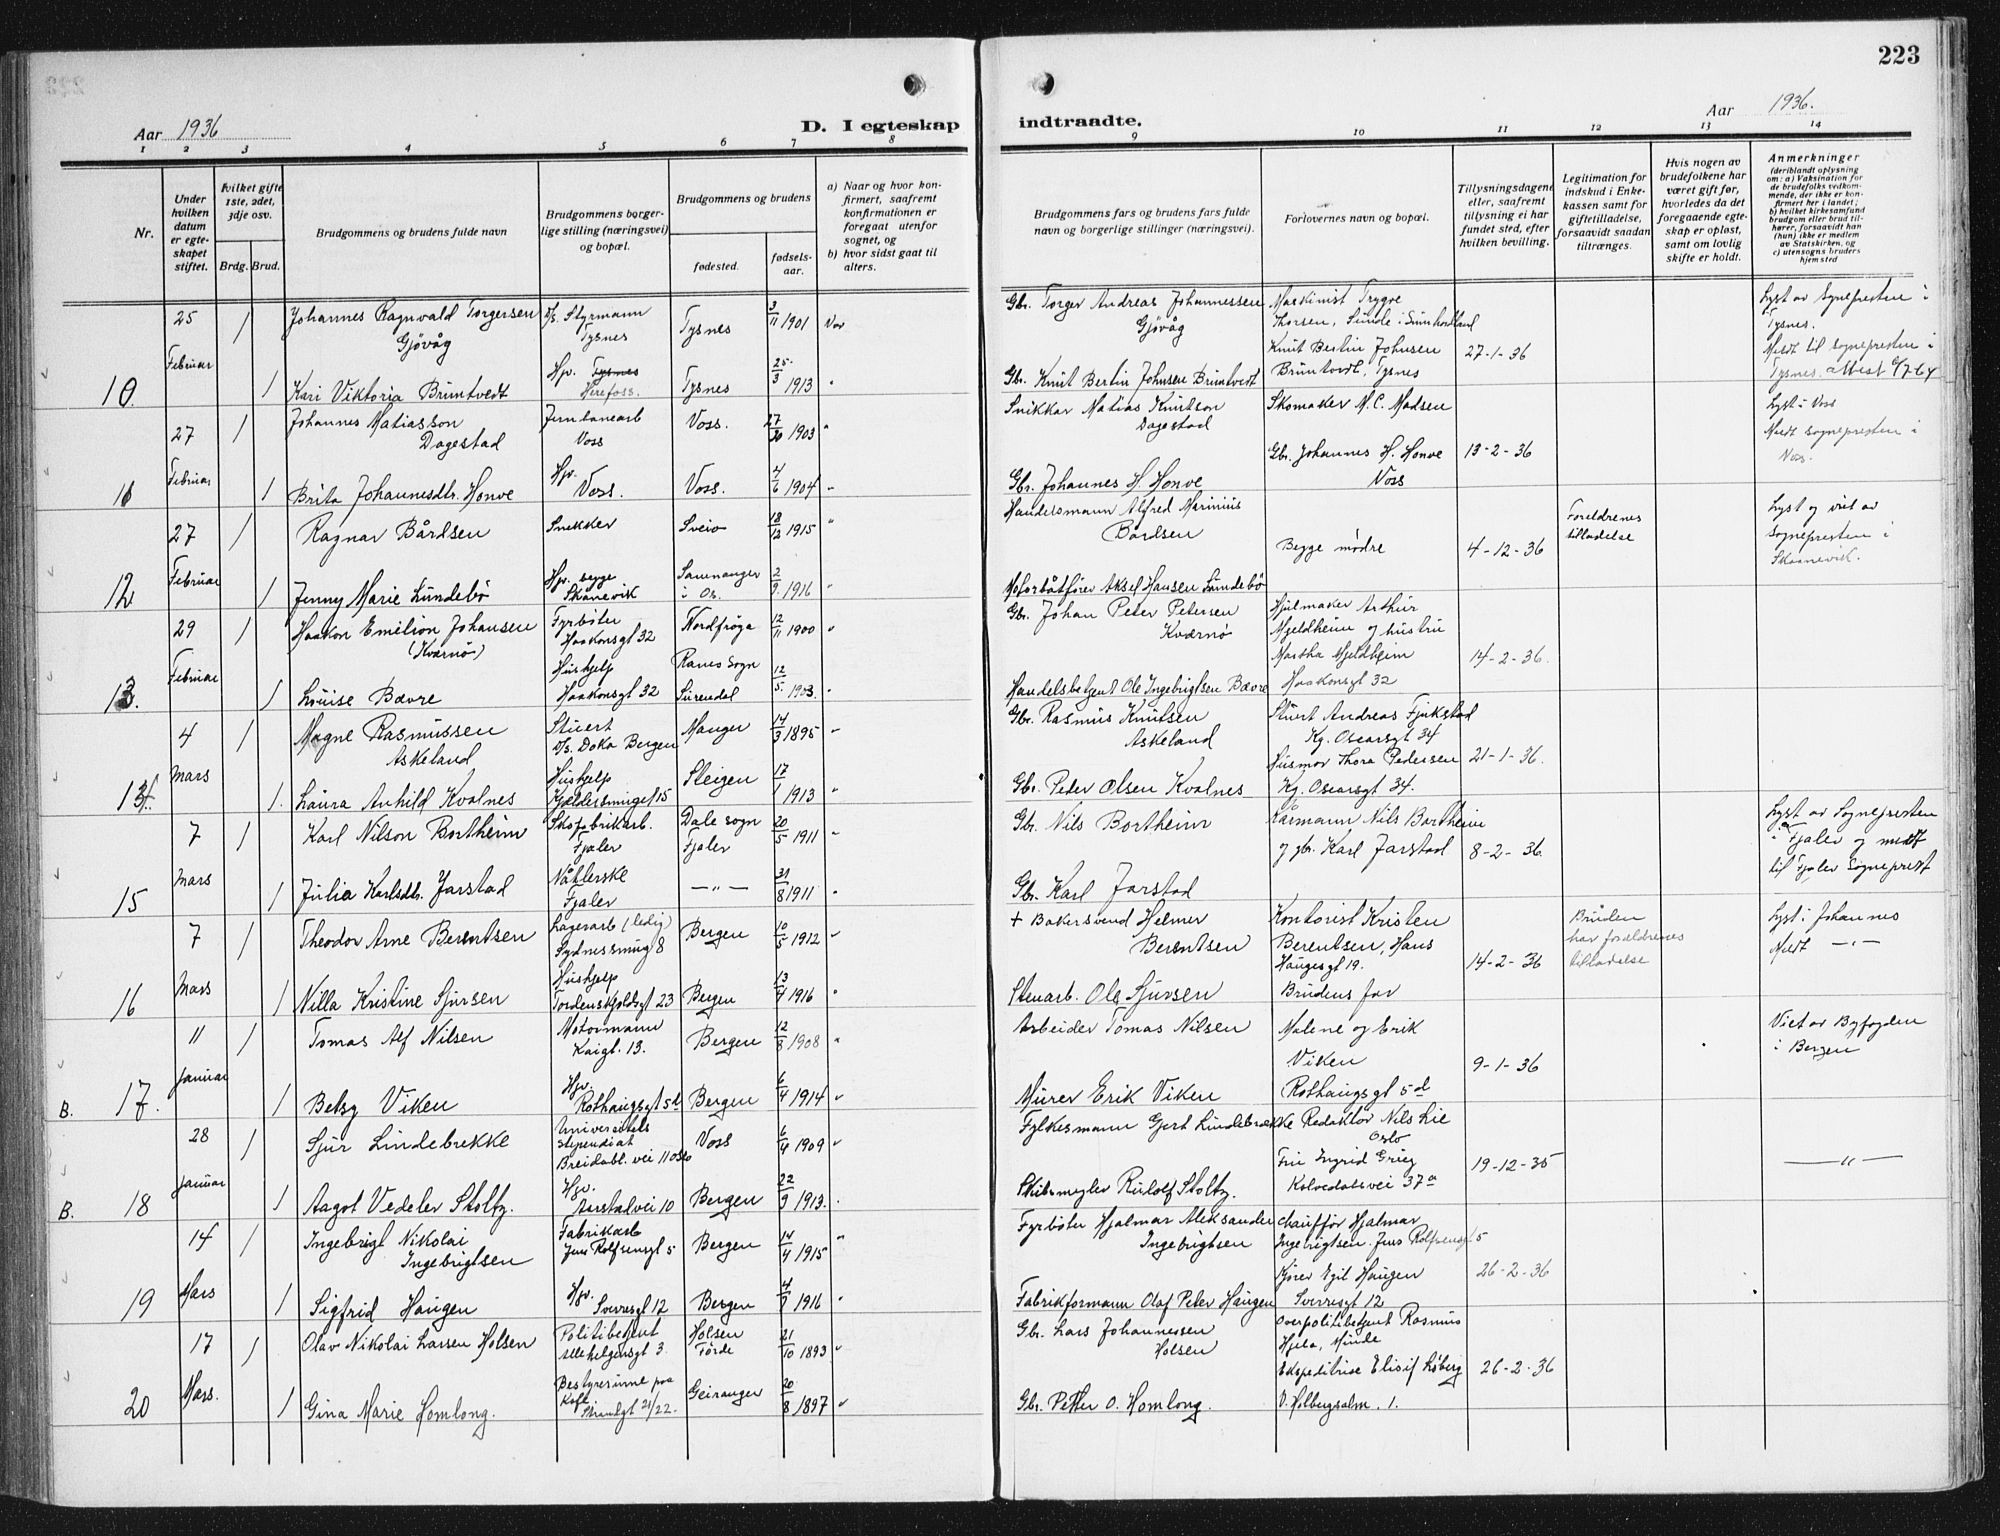 223
Aar 1936
D. Iegteskap
indtraadte.
Aar 1936.
1 2 3 4 5 6 7 8
9 10 11 12 13 14
Nr.
Under hvilken datum er egteskapet stiftet.
Hvilket gifte 1ste, 2det, 3dje osv.
Brdg. Brud.
Brudgommens og brudens fulde navn
Brudgommens borgerlige stilling (næringsvei) og bopæl.
Brudgommens og brudens
fødested.
fødselsaar.
a) Naar og hvor konfirmert, saafremt konfirmationen er foregaat utenfor sognet, og
b) hvor sidst gaat til alters.
Brudgommens fars og brudens fars fulde navn og borgerlige stillinger (næringsvei).
Forlovernes navn og bopæl.
Tillysningsdagene eller, saafremt tillysning ei har fundet sted, efter hvilken bevilling.
Legitimation for indskud i Enkekassen samt for giftetilladelse, forsaavidt saadan tiltrænges.
Hvis nogen av brudefolkene har været gift før, hvorledes da det foregaaende egteskap er opløst, samt om lovlig skifte er holdt.
Anmerkninger
(deriblandt oplysning om: a) Vaksination for de brudefolks vedkommende, der ikke er konfirmert her i landet; b) hvilket kirkesamfund brudgom eller brud tilhører, forsaavidt han (hun) ikke er medlem av Statskirken, og c) utensogns bruders hjemsted
10.
25 Februar
1 Johannes Ragnvald Torgersen Gjövåg
D/s. Styrmann Tysnes
Tysnes
3/11 1901
Vos
Gbr. Torger Andreas Johannessen Gjövåg
Maskinist Trygve Thorsen, Sunde i Sunnhordland
Lyst av Sognepresten i Tysnes.
1 Kari Viktoria Bruntvedt
Hjv. Tysnes Herefoss.
Tysnes
25/3 1913
"
Gbr. Knut Bertin Johnsen Bruntvedt
Knut Bertin Johnsen Bruntvedt, Tysnes
27-1-36
Meldt til sognepresten i Tysnes.
11
27 Februar
1 Johannes Matiasson Dagestad
Jernbanearb Voss
Voss.
1903
"
Snikkar Matias Knutson Dagestad
Skomaker M. C. Madsen
Lyst i Voss
1 Brita Johannesdtr. Honve
Hjv. Voss.
Voss.
4/6 1904
"
Gbr. Johannes H. Honve
Gbr. Johannes H. Honve Voss
13-2-36
Meldt sognepresten i Voss.
12
27 Februar
1 Ragnar Bårdsen
Snekker
Sveio
18/12 1915
"
Handelsmann Alfred Marinius Bårdsen
Begge mödre
4-12-36
Foreldrenes tilladelse
Lyst og viet av sognepresten i Skaanevik.
1 Jenny Marie Lundebö
Hjv. begge Skånevik
Samnanger i Os.
2/9 1916
"
Motorbåtförer Aksel Hansen Lundebö
13.
29 Februar
1 Haakon Emilion Johansen (Kværnö)
Fyrböter Haakonsgt 32
Nordfröya
12/11 1900
"
Gbr. Johan Peter Petersen Kværnö
Hjulmaker Arthur Mjeldheim og hustru
1 Louise Bævre
Hushjelp Haakonsgt 32
Ranes sogn Surendal
12/5. 1903.
"
Handelsbetjent Ole Ingebrigtsen Bævre
Martha Mjeldheim Haakonsgt 32
14-2-36.
14.
4 Mars
1 Magne Rasmussen Askeland
Stuert D/s. Doka Bergen
Manger
14/3 1895
"
Gbr. Rasmus Knutsen Askeland
Stuert Andreas Fjukstad Kg. Oscarsgt 34
1. Laura Anhild Kvalnes
Hushjelp Kjeldersmuget 15
Steigen
17/1 1913
"
Gbr. Peter Olsen Kvalnes
Husmor Thora Pedersen Kg. Oscarsgt 34.
21-1-36.
15
7 Mars
1 Karl Nilson Bortheim
Skofabrikarb. Fjaler
Dale sogn Fjaler
20/5 1911
"
Gbr. Nils Bortheim
Kårmann Nils Bortheim
Lyst av Sognepresten i Fjaler og meldt til Fjaler Sogneprest
1 Julia Karlsdtr. Jarstad
Nåtlerske Fjaler
— " —
31/8 1911
"
Gbr. Karl Jarstad
og gbr. Karl Jarstad
8-2-36.
16
7 Mars
1 Theodor Arne Berentsen
Lagerarb (ledig) Sydnessmug 8
Bergen
10/5 1912
"
+ Bakersvend Helmer Berentsen
Kontorist Kristen Berentsen, Hans Haugesgt 19.
14-2-36
Bruden har foreldrenes tilladelse
Lyst i Johannes Meldt — " —
1 Nilla Kristine Sjursen
Hushjelp Tordenskjoldsgt 23
Bergen
13/4 1916
"
Stuearb. Ole Sjursen
Brudens far
B. 17.
11 Januar
1 Tomas Alf Nilsen
Motormann Kaigt. 13.
Bergen
12/8 1908
"
Arbeider Tomas Nilsen
Malene og Erik Viken
9-1-36
Viet av Byfogden i Bergen
1 Betsy Viken
Hjv. Rothaugsgt 5d
Bergen
6/4 1914
"
Murer Erik Viken
Rothaugsgt 5d
B. 18
28 Januar
1 Sjur Lindebrekke
Universitets stipendiat Breidabl. vei 11 Oslo
Voss
6/4 1909
"
Fylkesmann Gjert Lindebrække
Redaktör Nils Lie Oslo
1 Aagot Vedeler Stoltz.
Hjv. Aarstadvei 10
Bergen
22/9 1913.
Skibsmegler Rudolf Stoltz.
Fru Ingrid Grieg Kalvedalsvei 37a
19-12-35
— " —
19
14 Mars
1 Ingebrigt Nikolai Ingebrigtsen
Fabrikarb Jens Rolfsensgt 5
Bergen
14/4 1915
"
Fyrböter Hjalmar Aleksander Ingebrigtsen
Chaufför Hjalmar Ingebrigtsen. Jens Rolfsensgt 5
1 Sigfrid Haugen
Hjv. Sverresgt 12
Bergen
1916
"
Fabrikformann Olaf Peter Haugen
Kjörer Egil Haugen Sverresgt 12
26-2-36
20
17 Mars.
1 Olav Nikolai Larsen Holsen
Politibetjent Allehelgensgt 3.
Holsen Förde
21/10 1893
"
Gbr. Lars Johannessen Holsen
Overpolitibetjent Rasmus Hjela, Minde
1 Gina Marie Homlong.
Bestyrerinne paa Kafe Strandgt 21/22.
Geiranger
20/8 1897
"
Gbr. Petter O. Homlong.
Ekspeditrise Elisif Löberg V. Holbergsalm. 1.
26-2-36